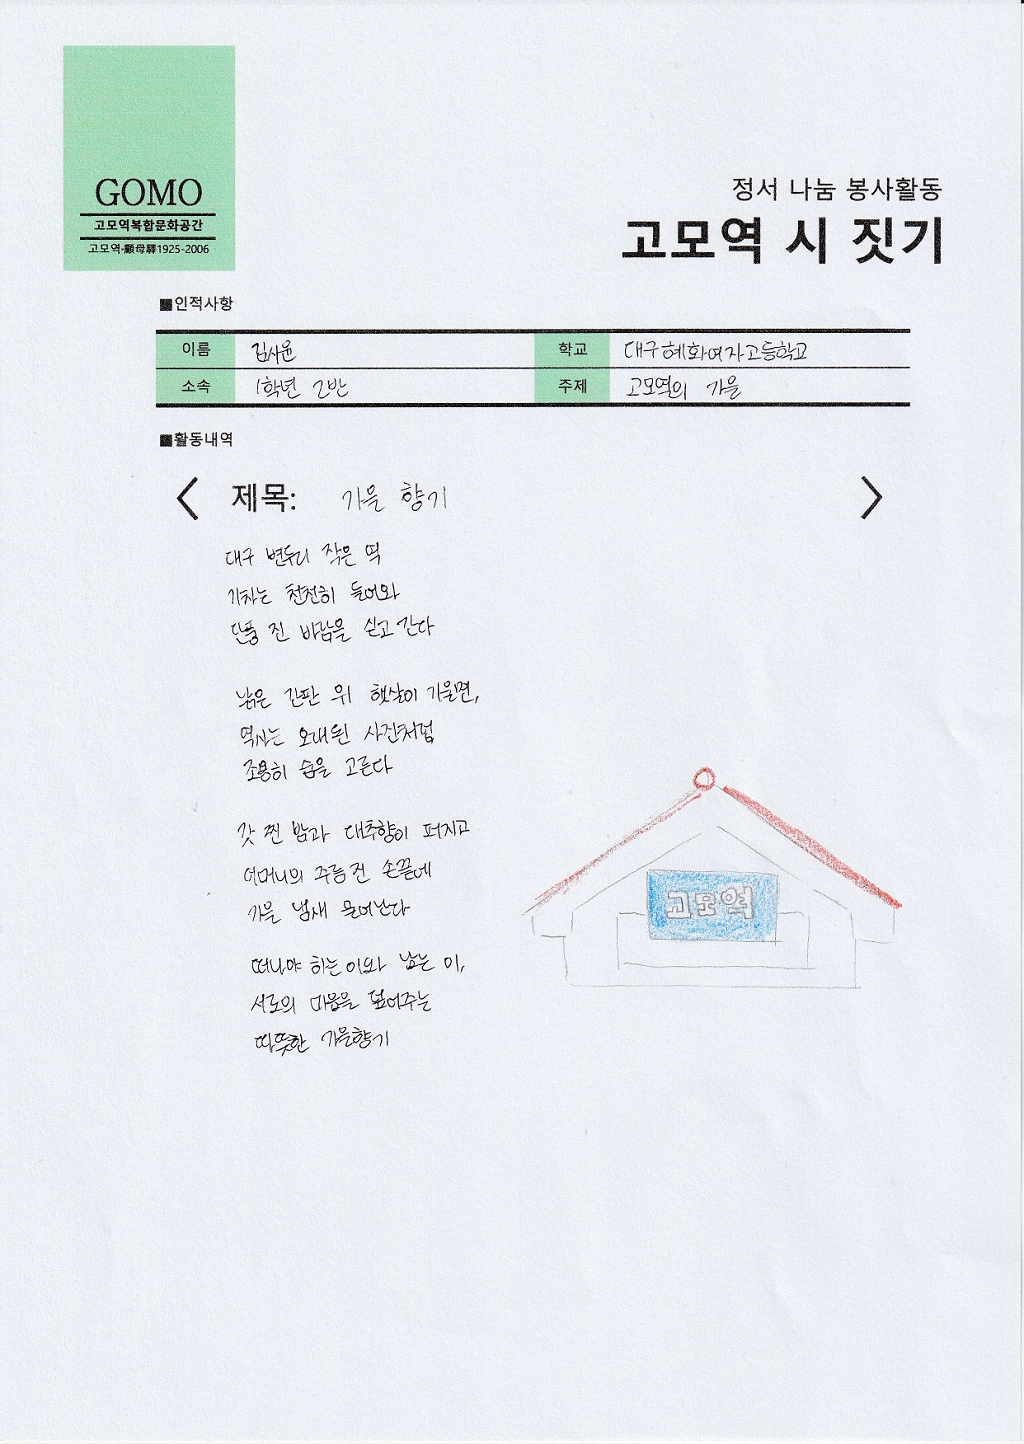 GOMO
고모역복합문화공간
고모역·顧母驛1925-2006
정서 나눔 봉사활동
고모역 시 짓기
■인적사항
이름 김사윤 학교 대구혜화여자고등학교
소속 1학년 2반 주제 고모역의 가을
■활동내역
< 제목: 가을 향기 >
대구 변두리 작은 역
기차는 천천히 들어와
단풍 진 바람을 싣고 간다
낡은 간판 위 햇살이 기울면,
역사는 오래된 사진처럼
조용히 숨을 고른다
갓 찐 밤과 대추향이 퍼지고
어머니의 주름진 손끝에
가을 냄새 묻어난다
고모역
떠나야 하는 이와 남는 이,
서로의 마음을 덮어주는
따뜻한 가을향기